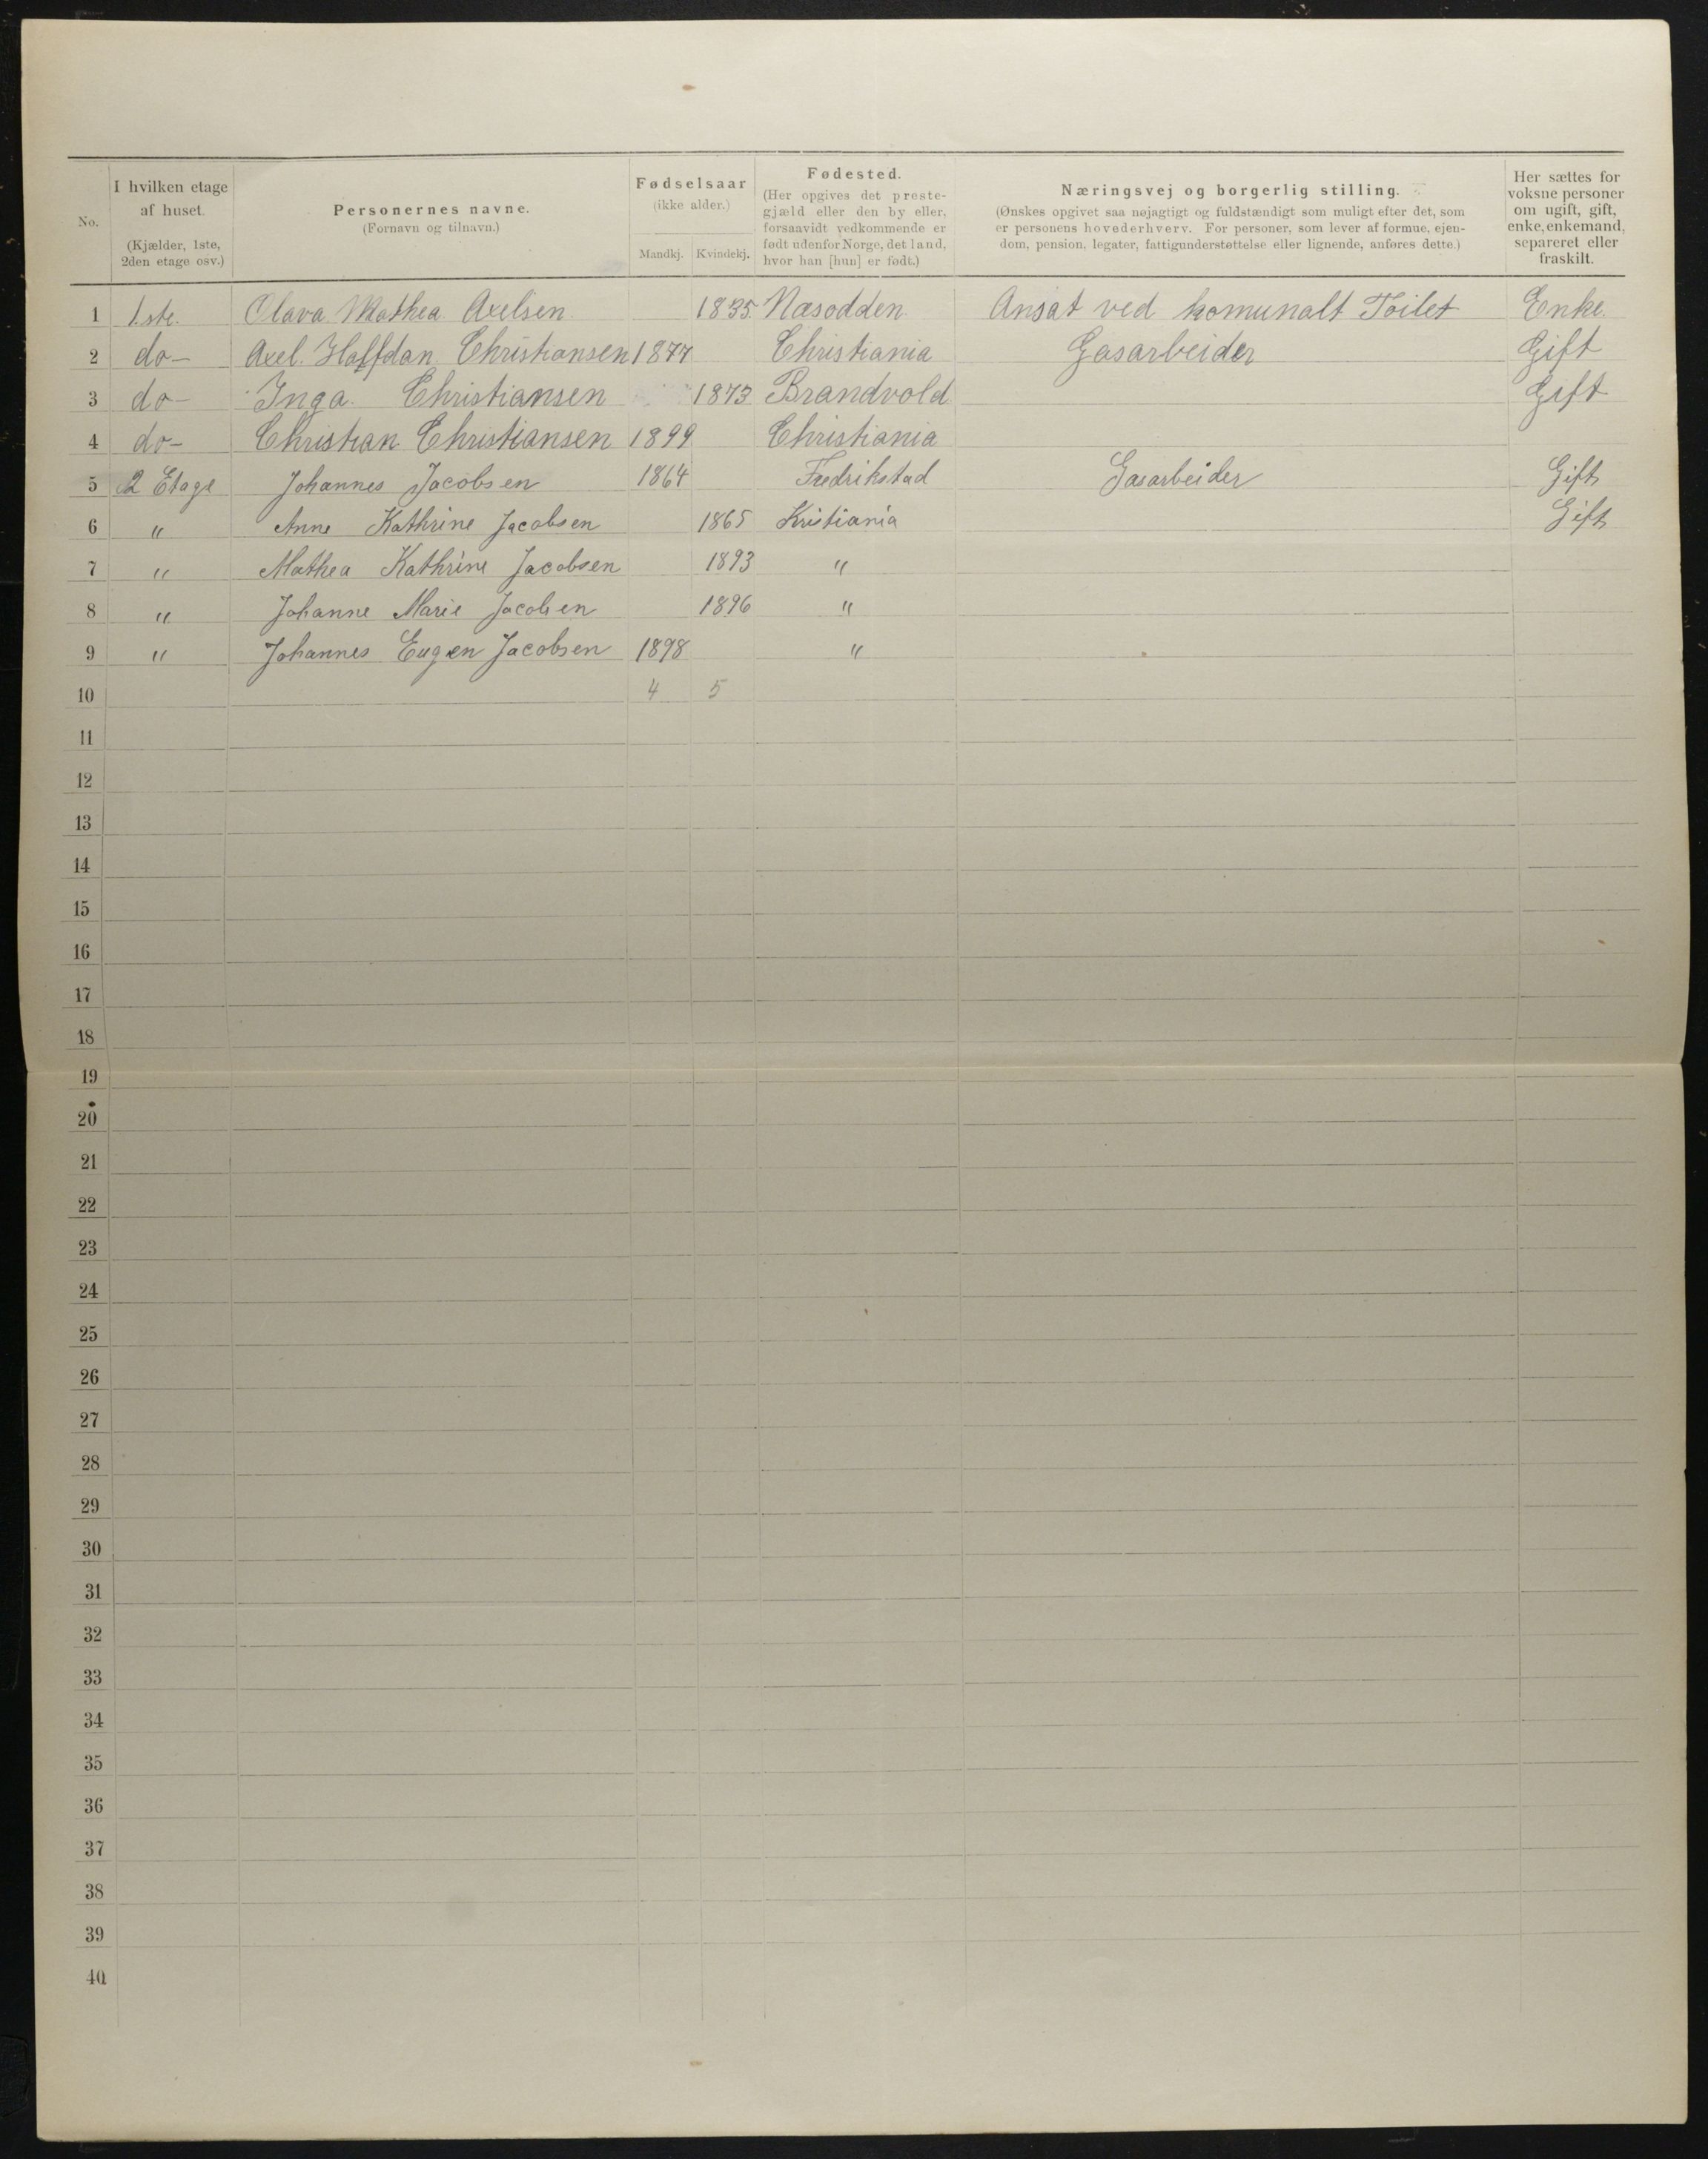 No.
I hvilken etage af huset. (Kjælder, 1ste, 2den etage osv.)
Personernes navne. (Fornavn og tilnavn.)
Fødselsaar (ikke alder.) Mandkj. Kvindekj.
Fødested. (Her opgives det prestegjæld eller den by eller, forsaavidt vedkommende er født udenfor Norge, det land, hvor han [hun] er født.)
Næringsvej og borgerlig stilling. (Ønskes opgivet saa nøjagtigt og fuldstændigt som muligt efter det, som er personens hovederhverv. For personer, som lever af formue, ejendom, pension, legater, fattigunderstøttelse eller lignende, anføres dette.)
Her sættes for voksne personer om ugift, gift, enke, enkemand, separeret eller fraskilt.
1 1.ste. Olava Mathea Axelsen 1835. Næsodden. Ansat ved komunalt Toilet Enke.
2 do- Axel. Halfdan Christiansen 1877 Christiania Gasarbeider Gift
3 do- Inga. Christiansen 1873 Brandvold Gift
4 do- Christian Christiansen 1899 Christiania
5 2 Etage Johannes Jacobsen 1864 Fredrikstad Gasarbeider Gift
6 " Anne Kathrine Jacobsen 1865 Kristiania Gift
7 " Mathea Kathrine Jacobsen 1893 "
8 " Johanne Marie Jacobsen 1896 "
9 " Johannes Eugen Jacobsen 1898 "
10 4 5
11
12
13
14
15
16
17
18
19
20
21
22
23
24
25
26
27
28
29
30
31
32
33
34
35
36
37
38
39
40